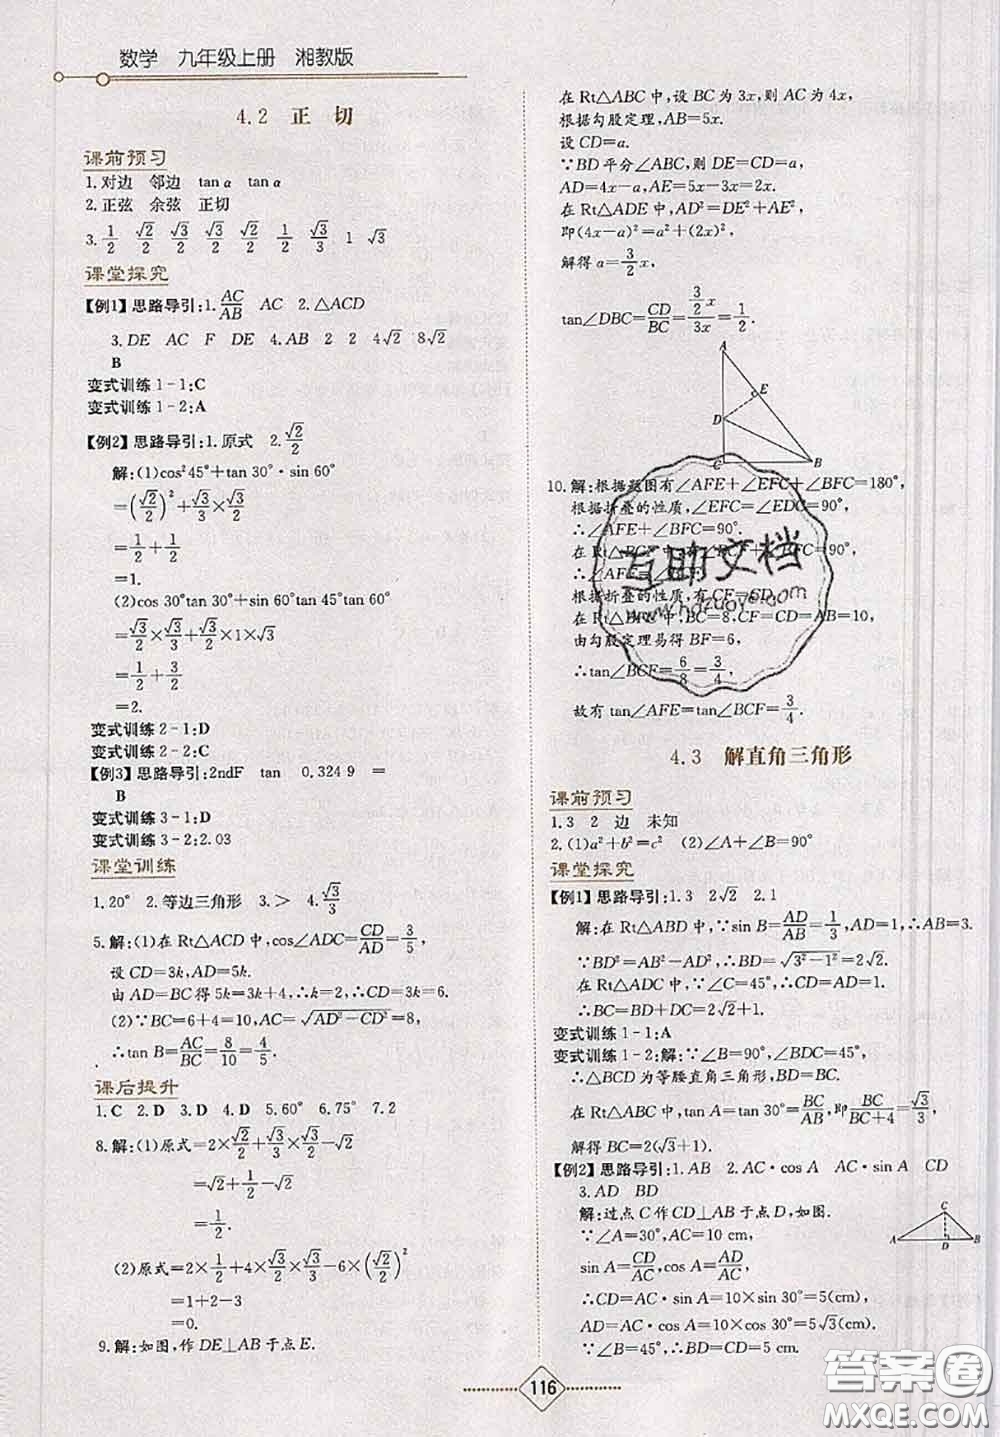 数学 九年级上册 湘教版
4.2 正 切
课前预习
1.对边 邻边 tan α tan α
2.正弦 余弦 正切
3.1/2 √2/2 √3/2 √3/2 √2/2 1/2 √3/3 1 √3
课堂探究
【例1】思路导引:1.AC/AB AC 2.△ACD
3.DE AC F DE 4.AB 2 2 4√2 8√2
B
变式训练1-1:C
变式训练1-2:A
【例2】思路导引:1.原式 2.√2/2
解:(1)cos²45°+tan 30°·sin 60°
=(√2/2)²+√3/3×√3/2
=1/2+1/2
=1.
(2)cos 30°tan 30°+sin 60°tan 45°tan 60°
=√3/2×√3/3+√3/2×1×√3
=1/2+3/2
=2.
变式训练2-1:D
变式训练2-2:C
【例3】思路导引:2ndF tan 0.324 9 =
B
变式训练3-1:D
变式训练3-2:2.03
课堂训练
1.20° 2.等边三角形 3.> 4.√3/3
5.解:(1)在Rt△ACD中,cos∠ADC=CD/AD=3/5,
设CD=3k,AD=5k.
由AD=BC得5k=3k+4,∴k=2,∴CD=3k=6.
(2)∵BC=6+4=10,AC=√(AD²-CD²)=8,
∴tan B=AC/BC=8/10=4/5.
课后提升
1.C 2.D 3.D 4.D 5.60° 6.75° 7.2
8.解:(1)原式=2×√2/2+√3/3×√3/2-√2
=√2+1/2-√2
=1/2.
(2)原式=2×1/2+4×√3/2×√3/3-6×(√2/2)²
=1+2-3
=0.
9.解:如图,作DE⊥AB于点E.
在Rt△ABC中,设BC为3x,则AC为4x,
根据勾股定理,AB=5x.
设CD=a,
∵BD平分∠ABC,则DE=CD=a,
AD=4x-a,AE=5x-3x=2x.
在Rt△ADE中,AD²=DE²+AE²,
即(4x-a)²=a²+(2x)²,
解得a=3/2x,
tan∠DBC=CD/BC=(3/2x)/3x=1/2.
A
E
D
C B
10.解:根据题图有∠AFE+∠EFC+∠BFC=180°,
根据折叠的性质,∠EFC=∠EDC=90°,
∴∠AFE+∠BFC=90°.
在Rt△BCF中,有∠BCF+∠BFC=90°,
∴∠AFE=∠BCF.
根据折叠的性质,有CF=CD.
在Rt△BCF中,BC=8,CF=CD=AB=10,
由勾股定理易得BF=6,
∴tan∠BCF=6/8=3/4,
故有tan∠AFE=tan∠BCF=3/4.
互助文档
www.hdzuoye.com
4.3 解直角三角形
课前预习
1.3 2 边 未知
2.(1)a²+b²=c² (2)∠A+∠B=90°
课堂探究
【例1】思路导引:1.3 2√2 2.1
解:在Rt△ABD中,∵sin B=AD/AB=1/3,AD=1,∴AB=3.
∵BD²=AB²-AD²,∴BD=√(3²-1²)=2√2.
在Rt△ADC中,∵∠C=45°,∴CD=AD=1.
∴BC=BD+DC=2√2+1.
变式训练1-1:A
变式训练1-2:解:∵∠B=90°,∠BDC=45°,
∴△BCD为等腰直角三角形,BD=BC.
在Rt△ABC中,tan A=tan 30°=BC/AB,即BC/(BC+4)=√3/3,
解得BC=2(√3+1).
【例2】思路导引:1.AB 2.AC·cos A AC·sin A CD
3.AD BD
解:过点C作CD⊥AB于点D,如图.
∵∠A=30°,AC=10 cm,
sin A=CD/AC,cos A=AD/AC,
∴CD=AC·sin A=10×sin 30°=5(cm),
AD=AC·cos A=10×cos 30°=5√3(cm).
∵∠B=45°,∴BD=CD=5 cm,
C
A D B
116
答案圈
MXQE.COM